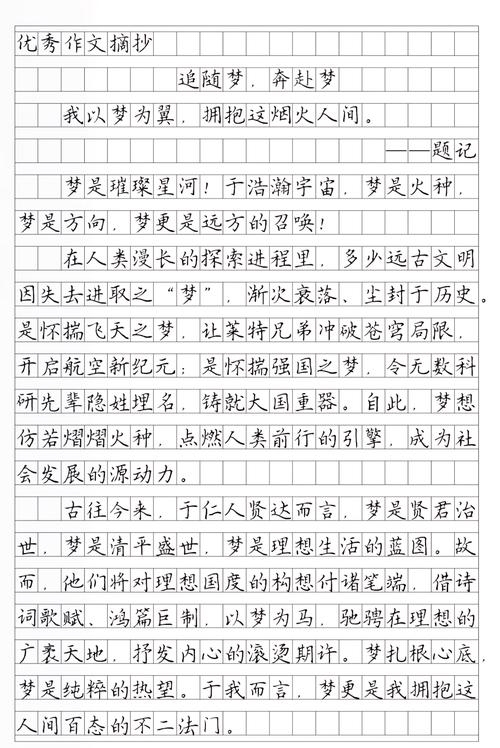 优秀作文摘抄
追随梦，奔赴梦
我以梦为翼，拥抱这烟火人间。
——题记
梦是璀璨星河！于浩瀚宇宙，梦是火种，
梦是方向，梦更是远方的召唤！
在人类漫长的探索进程里，多少远古文明
因失去进取之“梦”，渐次衰落、尘封于历史。
是怀揣飞天之梦，让莱特兄弟冲破苍穹局限，
开启航空新纪元；是怀揣强国之梦，令无数科
研先辈隐姓埋名，铸就大国重器。自此，梦想
仿若熠熠火种，点燃人类前行的引擎，成为社
会发展的源动力。
古往今来，于仁人贤达而言，梦是贤君治
世，梦是清平盛世，梦是理想生活的蓝图。故
而，他们将对理想国度的构想付诸笔端，借诗
词歌赋、鸿篇巨制，以梦为马，驰骋在理想的
广袤天地，抒发内心的滚烫期许。梦扎根心底，
梦是纯粹的热望。于我而言，梦更是我拥抱这
人间百态的不二法门。